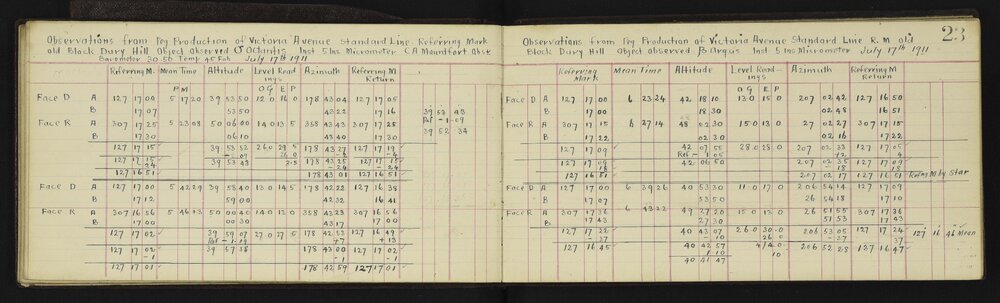 Observations from Peg Production of Victoria Avenue Standard Line Referring Mark
old Block Dury Hill Object Observed Octantis Inst 5 Ins Micrometer C A Mountfort Obsr
Barometer 30.50 Temp 45 Fah July 17th 1911
Referring M. Mean Time Altitude Level Readings Azimuth Referring M Return
P M O G E P
Face D A 127 17 09 5 17 20 39 53 50 12 0 16 0 178 43 04 127 17 05
B 17 07 53 50 43 22 17 16 39 53 43
Face R A 307 17 25 5 23 08 50 06 00 14 0 13 5 358 43 43 307 17 28 Ref - 1.09
B 17 30 06 10 43 40 17 30 39 52 34
127 17 15 39 53 52 26 0 29 5 178 43 27 127 17 19
127 17 15 39 53 43 178 43 25 127 17 15
-24 -24 -24
127 16 51 178 43 01 127 16 51
Face D A 127 17 00 5 42 29 39 58 40 13 0 14 5 178 42 22 127 16 38
B 17 12 59 00 42 32 16 41
Face R A 307 16 56 5 46 13 50 00 40 14 0 13 0 358 43 23 307 16 56
B 17 00 00 30 43 17 17 00
127 17 02 39 59 07 27 0 27 5 178 42 53 127 16 49
Ref - 1.19 +7 +13
127 17 02 39 57 38 178 43 00 127 17 02
-1 -1 -1
127 17 01 178 42 59 127 17 01
23
Observations from Peg Production of Victoria Avenue Standard Line R. M old
Block Dury Hill Object observed B Argus Inst 5 Ins Micrometer July 17th 1911
Referring Mark Mean Time Altitude Level Readings Azimuth Referring M Return
O G E P
Face D A 127 17 00 6 23 24 42 18 10 13 0 15 0 207 02 42 127 16 50
B 17 00 18 30 02 48 16 51
Face R A 307 17 15 6 27 14 48 02 30 15 0 13 0 27 02 27 307 17 15
B 17 22 02 30 02 16 17 22
127 17 09 42 07 55 28 0 28 0 207 02 33 127 17 05
Ref - 1.05 +2 -4
127 17 09 42 06 50 207 02 35 127 17 09
-18 -18 -18
127 16 51 207 02 17 127 16 51 Refing M by Star
Face D A 127 17 00 6 39 26 40 53 30 11 0 17 0 206 54 14 127 17 09
B 17 00 53 50 26 54 18 17 10
Face R A 307 17 36 6 43 22 49 27 20 15 0 13 0 26 51 55 307 17 36
B 17 43 27 30 51 53 17 43
127 17 22 40 43 07 26 0 30 0 206 53 05 127 17 24
-37 10 26 0 -37 -37 127 16 46 Mean
127 16 45 40 42 57 206 52 28 127 16 47
1 10 10
40 41 47